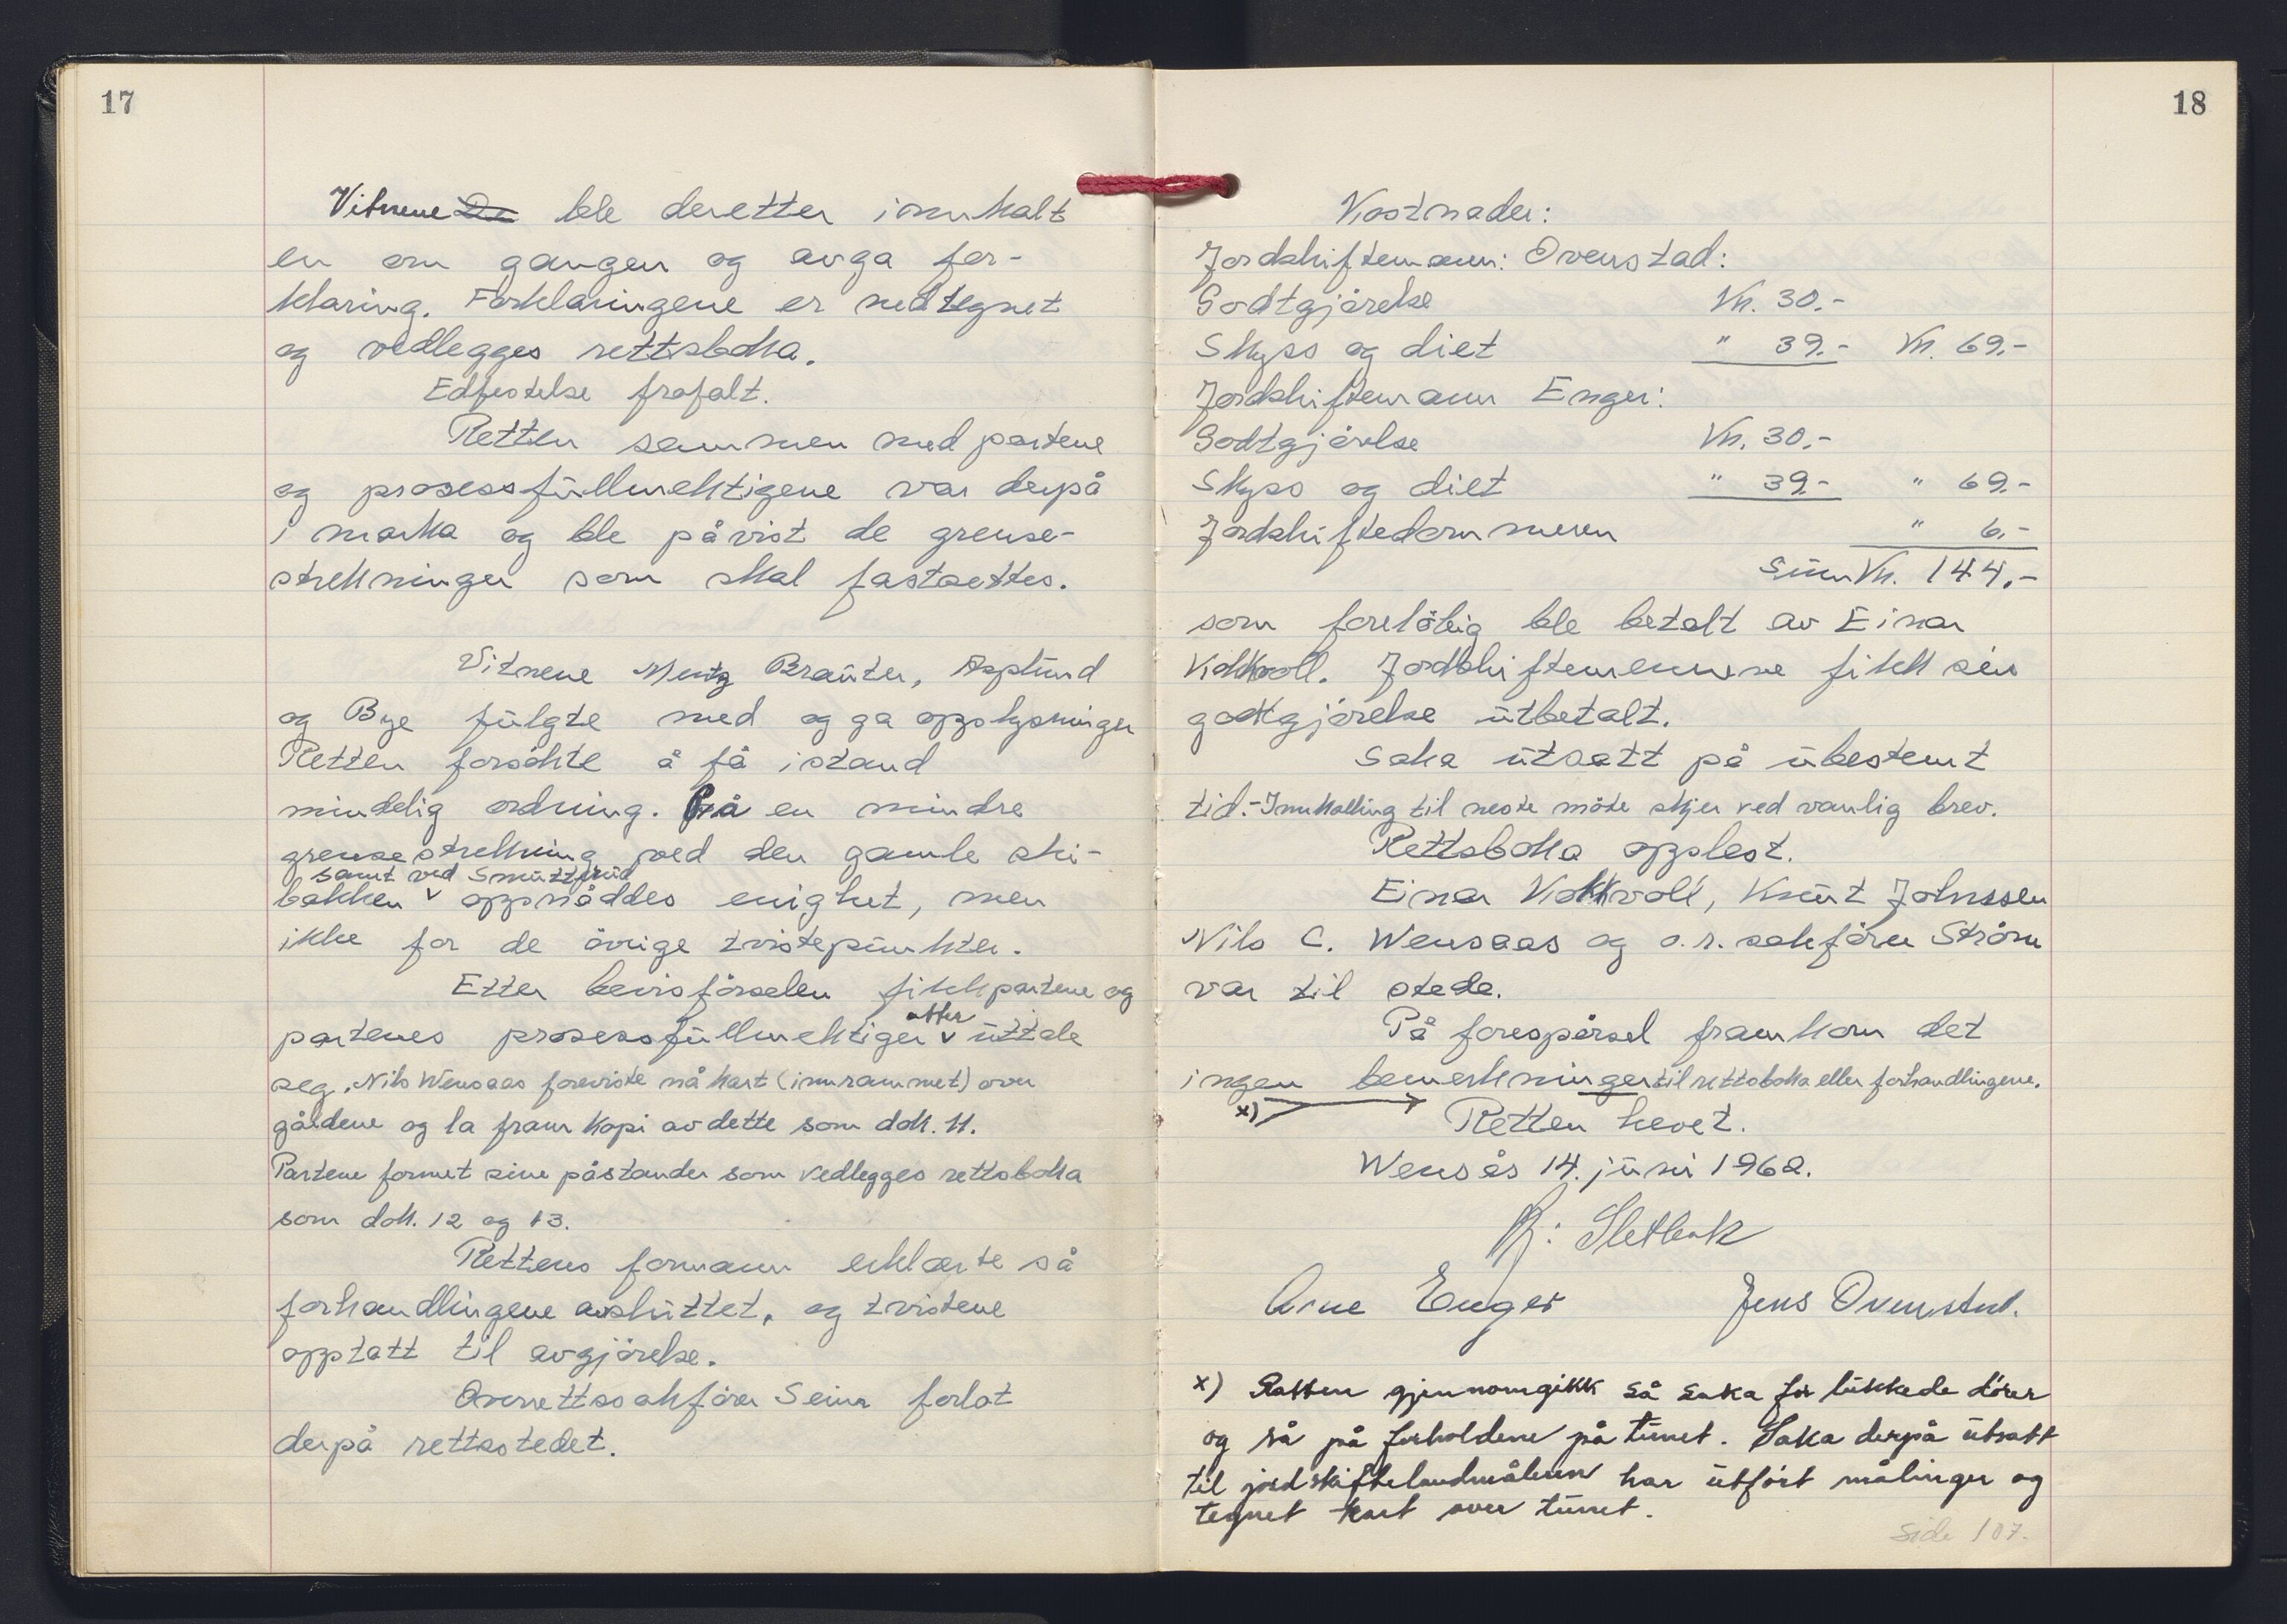 17
Vitnene De ble deretter innkalt
en om gangen og avga for-
klaring. Forklaringene er nedtegnet
og vedlegges rettsboka.
Edfestelse frafalt.
Retten sammen med partene
og prosessfullmektigene var derpå
i marka og ble påvist de grense-
strekninger som skal fastsettes.
Vitnene Mentz Brauter, Asplund
og Bye fulgte med og ga opplysninger
Retten forsökte å få istand
mindelig ordning. På en mindre
grensestrekning ved den gamle ski-
samt ved
bakken v oppnåddes enighet, men
ikke for de övrige tvistepunkter.
Etter bevisförselen fikk partene og
atter
partenes prosessfullmektiger v uttale
seg. Nils Wensaas foreviste nå kart (innrammet) over
gårdene og la fram kopi av dette som dok. 11.
Partene formet sine påstander som vedlegges rettsboka
som dok. 12 og 13.
Rettens formann erklærte så
forhandlingene avsluttet, og tvistene
opptatt til avgjörelse.
Overrettssakförer Seim forlot
derpå rettsstedet.
18
Kostnader:
Jordskiftemann: Ovenstad:
Godtgjörelse Kr. 30.-
Skyss og diet " 39.- Kr. 69.-
Jordskiftemann Enger:
Godtgjörelse Kr. 30.-
Skyss og diet " 39.- " 69.-
Jordskiftedommeren " 6.-
Sum Kr. 144.-
som forelöbig ble betalt av Einar
Kokkvoll. Jordskiftemennene fikk sin
godtgjörelse utbetalt.
Saka utsatt på ubestemt
tid.- Innkalling til neste möte skjer ved vanlig brev.
Rettsboka opplest.
Einar Kokkvoll, Knut Johnssen
Nils C. Wensaas og o.r. sakförer Ström
var til stede.
På forespörsel framkom det
ingen bemerkninger til rettsboka eller forhandlingene.
x)
Retten hevet.
Wensås 14. juni 1962.
Arne Enger Jens Ovenstad.
x) Retten gjennomgikk så saka for lukkede dörer
og så på forholdene på tunet. Saka derpå utsatt
til jordskiftelandmåleren har utfört målinger og
tegnet kart over tunet.
Side 107.